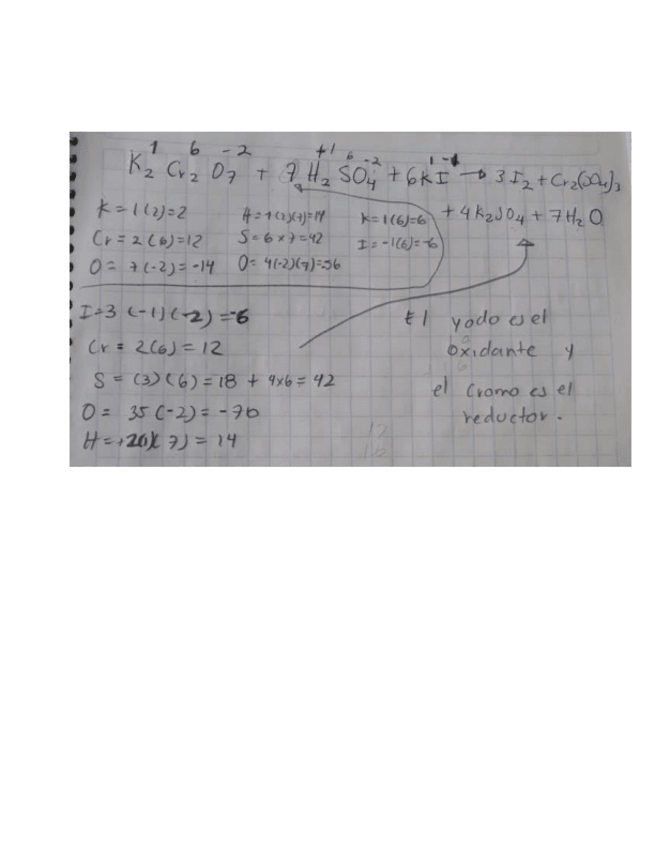 1 6 -2 +1 6 -2 1 -1
K₂ Cr₂ O₇ + 7 H₂ SO₄ + 6KI → 3 I₂ + Cr₂(SO₄)₃
+ 4 K₂SO₄ + 7H₂O
K = 1(2)=2
Cr = 2(6)=12
O = 7(-2)= -14
H = 1(2)(7)=14
S = 6 x 7 = 42
O = 4(-2)(7)=-56
K = 1(6)=6
I = -1(6)= -6
I = 3 (-1)(-2) = -6
Cr = 2(6) = 12
S = (3)(6) = 18 + 4x6 = 42
O = 35(-2) = -70
7) = 14
El yodo es el
oxidante y
el cromo es el
reductor.